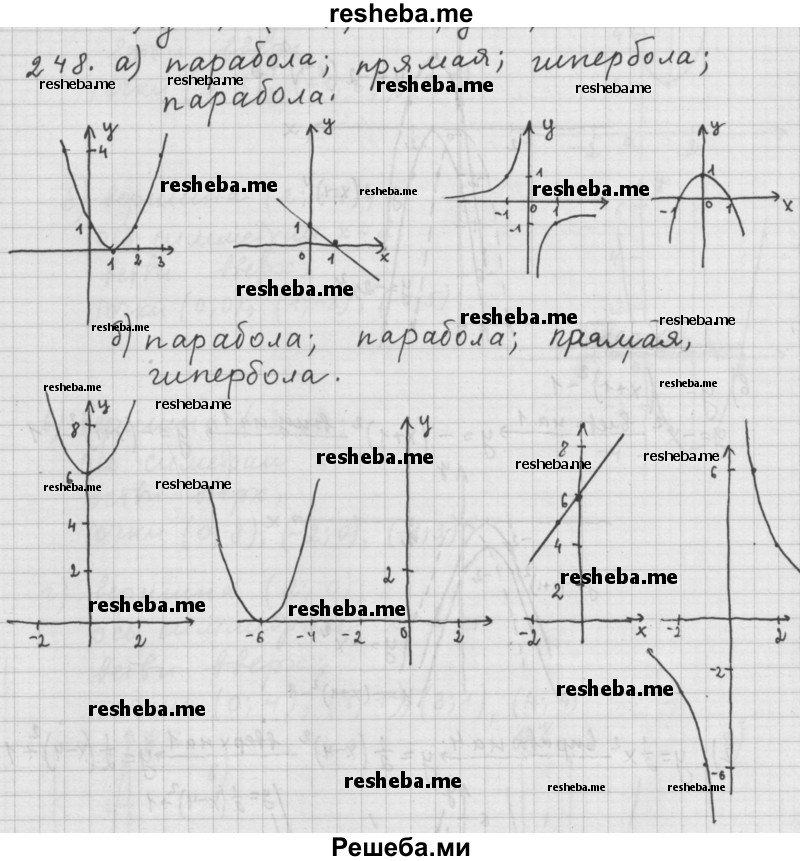 resheba.me
248. а) парабола; прямая; гипербола;
парабола.
resheba.me resheba.me resheba.me resheba.me
y 4 1 1 2 3
y 1 0 1 x
y 1 -1 0 1 -1
y 1 -1 0 1 x
resheba.me resheba.me resheba.me
resheba.me resheba.me resheba.me
resheba.me
б) парабола; парабола; прямая,
гипербола.
resheba.me resheba.me resheba.me
y 8 6 4 2 -2 2
y 2 -6 -4 -2 0 2
8 6 4 2 -2 x
6 -2 2 -2 -6
resheba.me resheba.me resheba.me
resheba.me resheba.me
resheba.me resheba.me resheba.me
resheba.me resheba.me
resheba.me resheba.me resheba.me
Решеба.ми